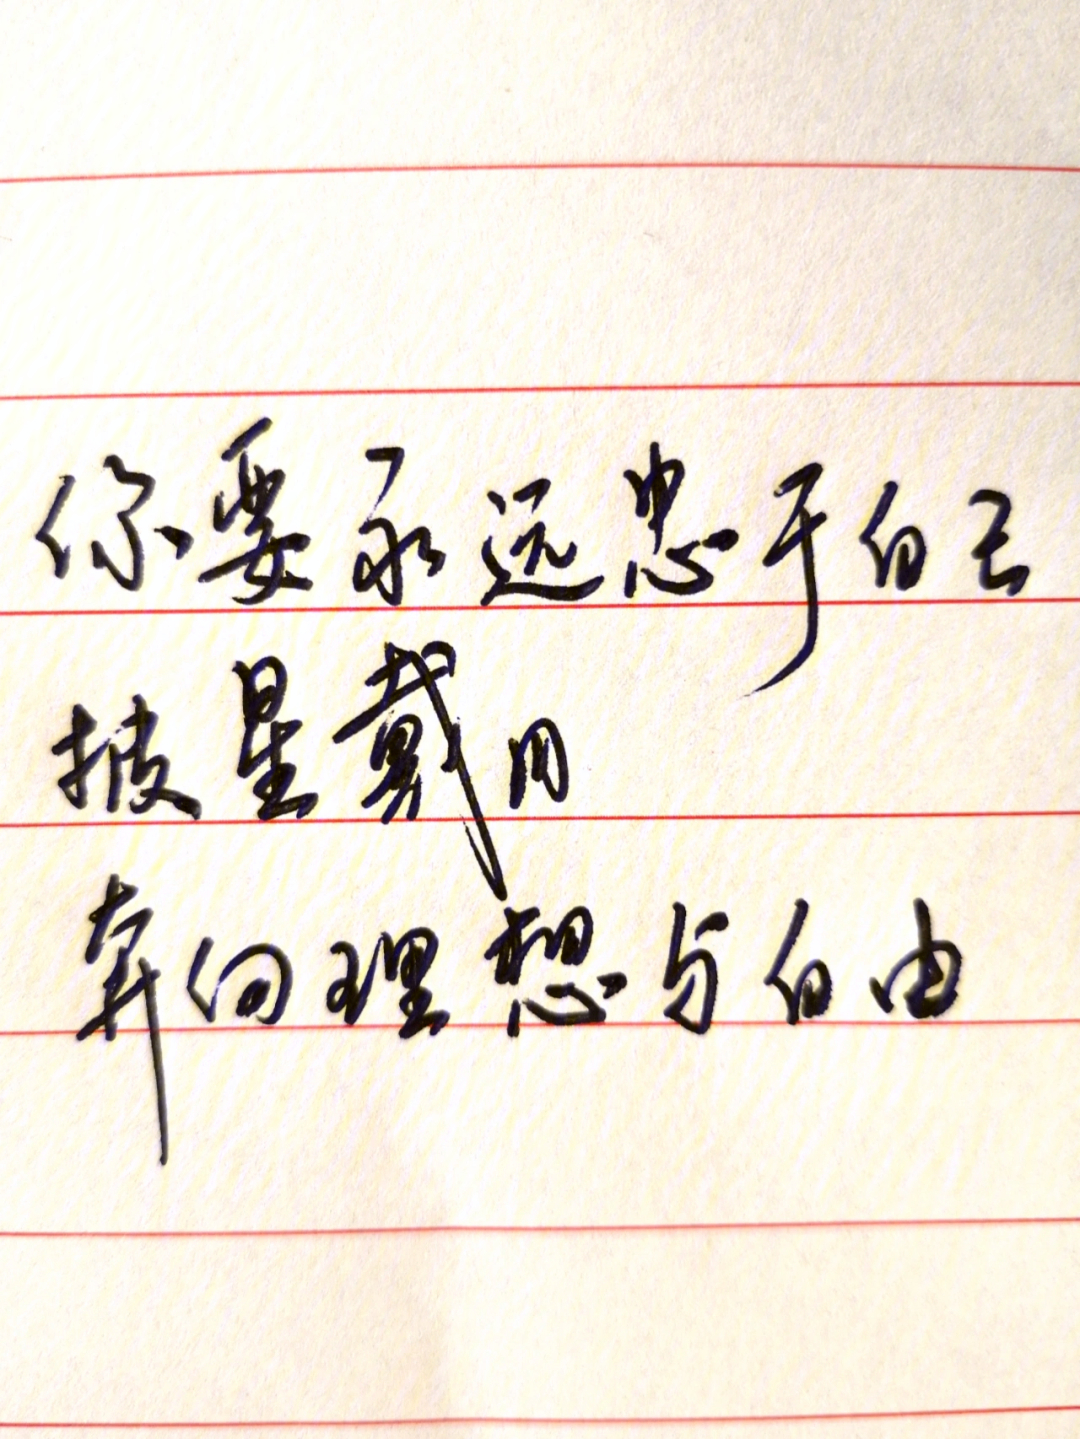 你要永远忠于自己
披星戴月
奔向理想与自由